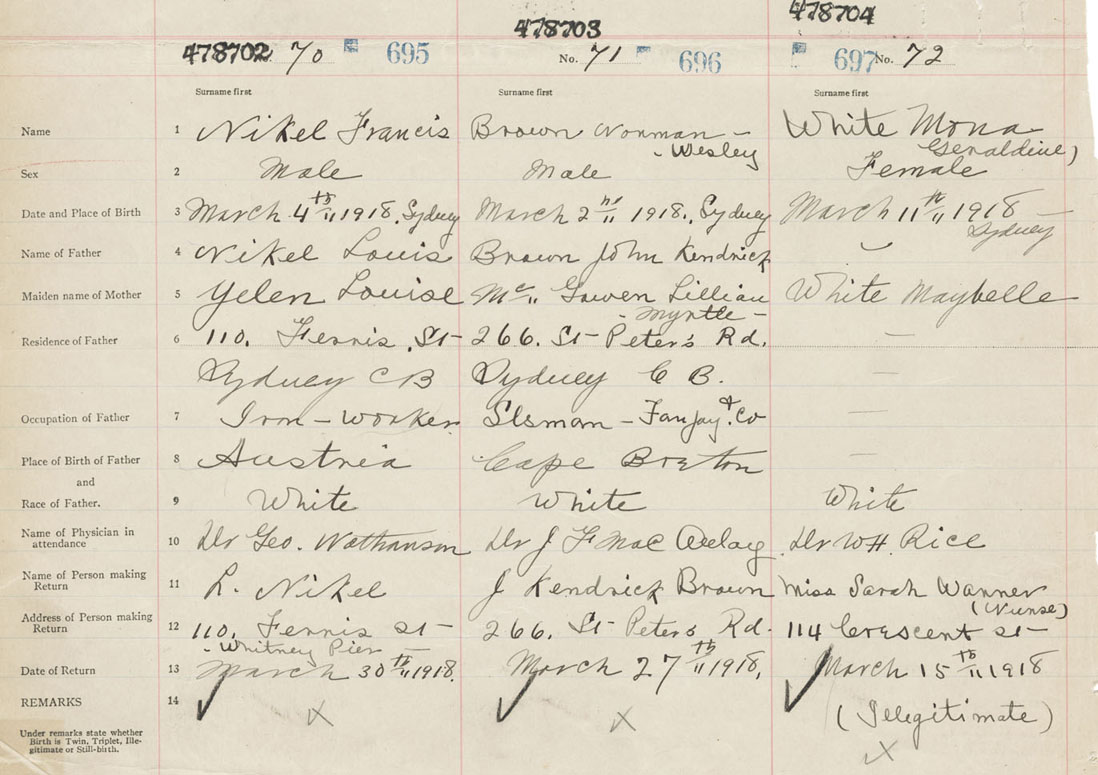 478703
478704
478702 70 695 No. 71 696 697 No. 72
Surname first Surname first Surname first
Name 1 Nikel Francis Brown Norman - White Mona
- Wesley Geraldine)
Sex 2 Male Male Female
Date and Place of Birth 3 March 4th 1918. Sydney March 2nd 1918., Sydney March 11th 1918 -
Sydney
Name of Father 4 Nikel Louis Brown John Kendrick
Maiden name of Mother 5 Yelen Louise Mc Gowen Lillian White Maybelle
- Myrtle -
Residence of Father 6 110. Ferris St- 266. St- Peter's Rd. —
Sydney CB Sydney C B. —
Occupation of Father 7 Iron - Worker Slsman - & Co —
Place of Birth of Father 8 Austria Cape Breton —
and
Race of Father. 9 White White White
Name of Physician in
attendance 10 Dr Geo. Nathanson Dr J F Mac Dr WH. Rice
Name of Person making
Return 11 L. Nikel J Kendrick Brown Miss Sarah Wanner
(Nurse)
Address of Person making
Return 12 110. Ferris St- 266. St- Peter's Rd. 114 Crescent St-
- Whitney Pier -
Date of Return 13 March 30th 1918. March 27th 1918, March 15th 1918
REMARKS 14 ✓ X ✓ X ✓ (Illegitimate) X
Under remarks state whether
Birth is Twin, Triplet, Ille-
gitimate or Still-birth.